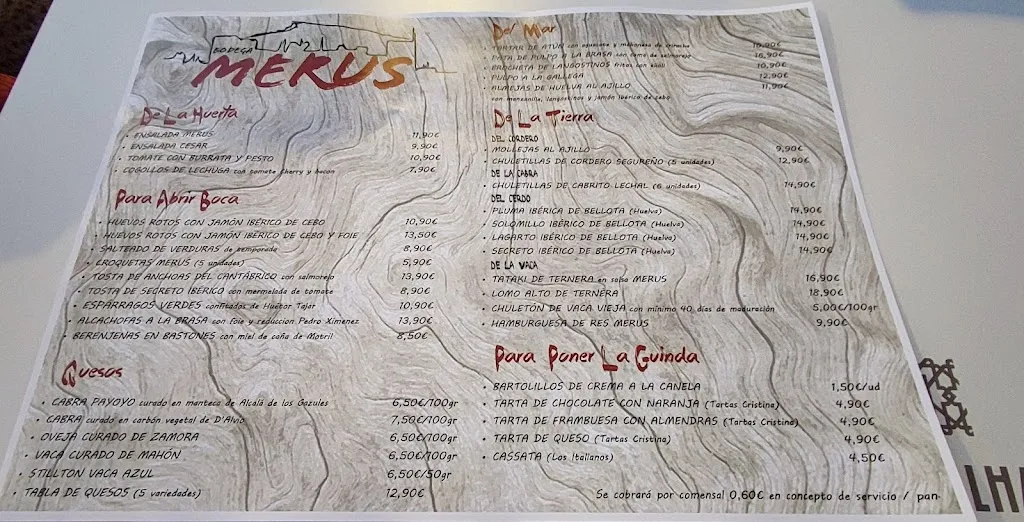 BODEGA
MERUS
De La Huerta
• ENSALADA MERUS 11,90€
• ENSALADA CESAR 9,90€
• TOMATE CON BURRATA Y PESTO 10,90€
• COGOLLOS DE LECHUGA con tomate cherry y bacon 7,90€
Para Abrir Boca
• HUEVOS ROTOS CON JAMÓN IBÉRICO DE CEBO 10,90€
• HUEVOS ROTOS CON JAMÓN IBÉRICO DE CEBO Y FOIE 13,50€
• SALTEADO DE VERDURAS de temporada 8,90€
• CROQUETAS MERUS (5 unidades) 5,90€
• TOSTA DE ANCHOAS DEL CANTÁBRICO con salmorejo 13,90€
• TOSTA DE SECRETO IBÉRICO con mermelada de tomate 8,90€
• ESPÁRRAGOS VERDES confitados de Huétor Tajar 10,90€
• ALCACHOFAS A LA BRASA con Foie y reduccion Pedro Ximenez 13,90€
• BERENJENAS EN BASTONES con miel de caña de Motril 8,50€
Quesos
• CABRA PAYOYO curado en manteca de Alcalá de los Gazules 6,50€/100gr
• CABRA curado en carbón vegetal de D'Alvio 7,50€/100gr
• OVEJA CURADO DE ZAMORA 6,50€/100gr
• VACA CURADO DE MAHÓN 6,50€/100gr
• STILLTON VACA AZUL 6,50€/50gr
• TABLA DE QUESOS (5 variedades) 12,90€
Del Mar
• TARTAR DE ATÚN con aguacate y mahonesa de siracha 18,90€
• PATA DE PULPO A LA BRASA con crema de salmorejo 16,90€
• BROCHETA DE LANGOSTINOS fritos con alioli 10,90€
• PULPO A LA GALLEGA 12,90€
• ALMEJAS DE HUELVA AL AJILLO 11,90€
con manzanilla, langostinos y jamón ibérico de cebo
De La Tierra
DEL CORDERO
• MOLLEJAS AL AJILLO 9,90€
• CHULETILLAS DE CORDERO SEGUREÑO (5 unidades) 12,90€
DE LA CABRA
• CHULETILLAS DE CABRITO LECHAL (6 unidades) 14,90€
DEL CERDO
• PLUMA IBÉRICA DE BELLOTA (Huelva) 14,90€
• SOLOMILLO IBÉRICO DE BELLOTA (Huelva) 14,90€
• LAGARTO IBÉRICO DE BELLOTA (Huelva) 14,90€
• SECRETO IBÉRICO DE BELLOTA (Huelva) 14,90€
DE LA VACA
• TATAKI DE TERNERA en salsa MERUS 16,90€
• LOMO ALTO DE TERNERA 18,90€
• CHULETÓN DE VACA VIEJA con mínimo 40 días de maduración 5,00€/100gr
• HAMBURGUESA DE RES MERUS 9,90€
Para Poner La Guinda
• BARTOLILLOS DE CREMA A LA CANELA 1,50€/ud
• TARTA DE CHOCOLATE CON NARANJA (Tartas Cristina) 4,90€
• TARTA DE FRAMBUESA CON ALMENDRAS (Tartas Cristina) 4,90€
• TARTA DE QUESO (Tartas Cristina) 4,90€
• CASSATA (Los Italianos) 4,50€
Se cobrará por comensal 0,60€ en concepto de servicio / pan
LHA